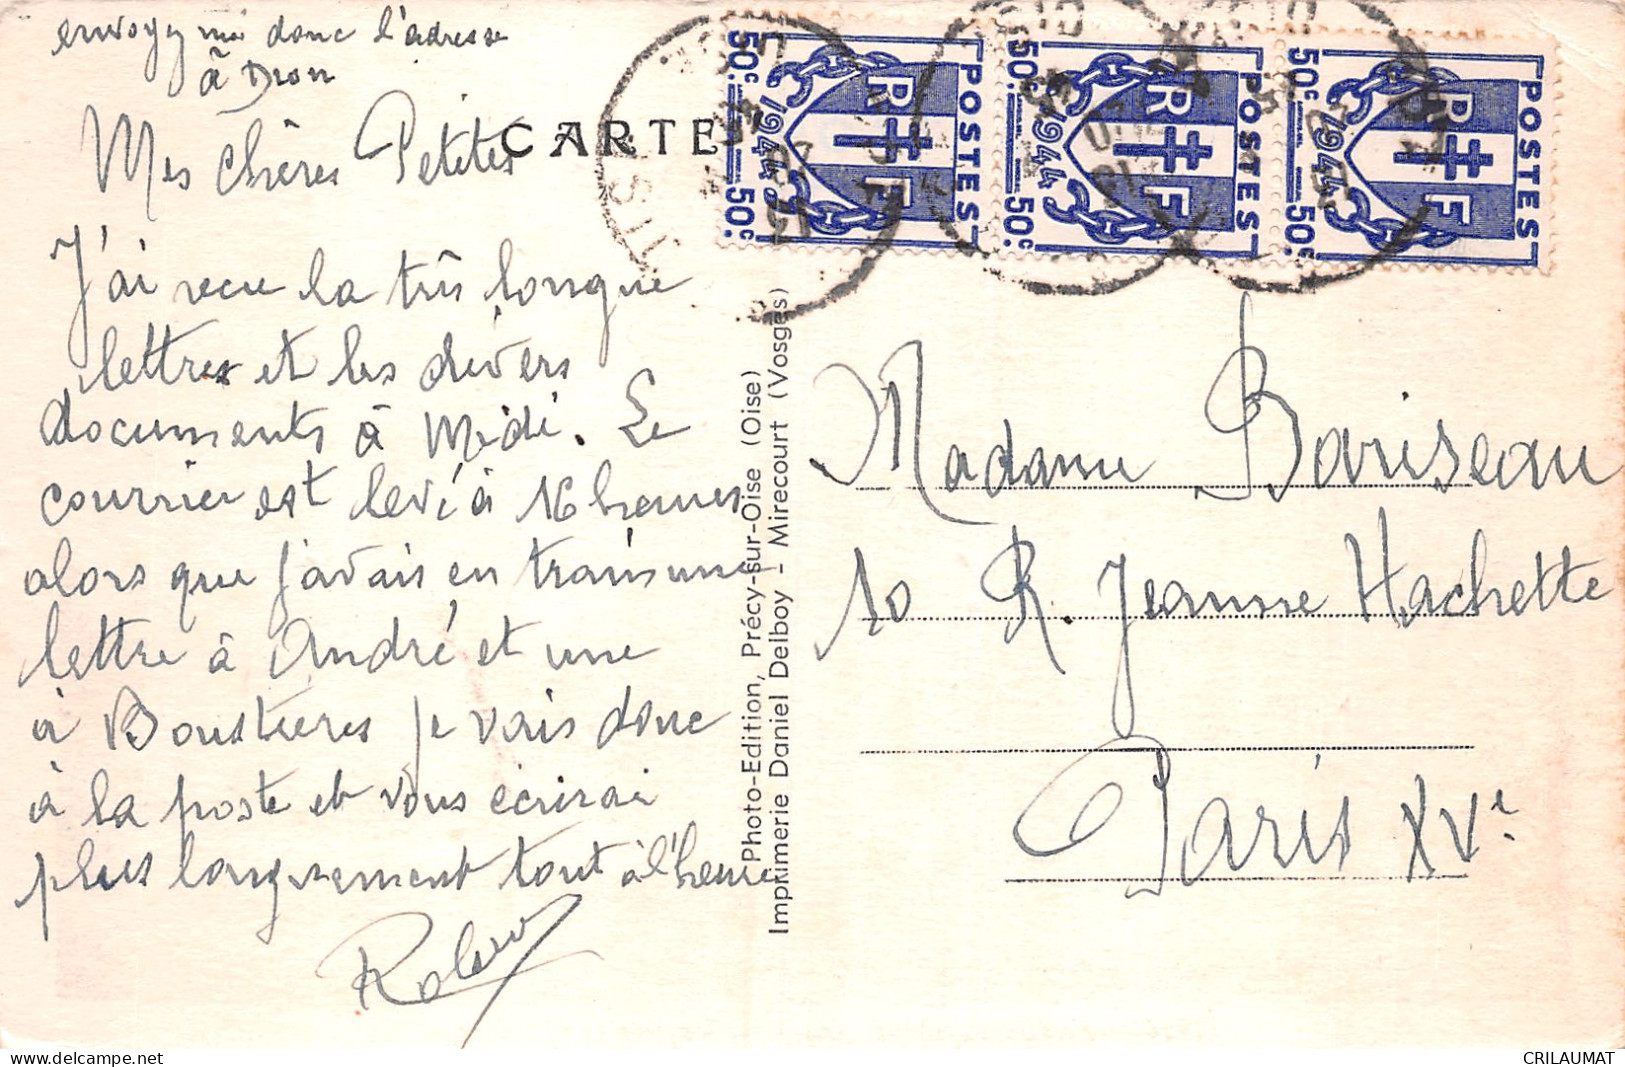 envoyez moi donc l'adresse
à Dion
CARTE
Mes chères Petites
J'ai recu la très longue
lettres et les divers
documents à Midi. Le
courrier est levé à 16 heures
alors que j'avais en train une
lettre à André et une
à Boustieres je vais donc
à la poste et vous écrirai
plus longuement tout à l'heure
Photo-Edition, Précy-sur-Oise (Oise)
Imprimerie Daniel Delboy - Mirecourt (Vosges)
50c. 1944 50c. RF POSTES
50c. 1944 50c. RF POSTES
50c. 1944 50c. RF POSTES
Madame Bariseau
10 R. Jeanne Hachette
Paris XVe
CRILAUMAT
delcampe.net